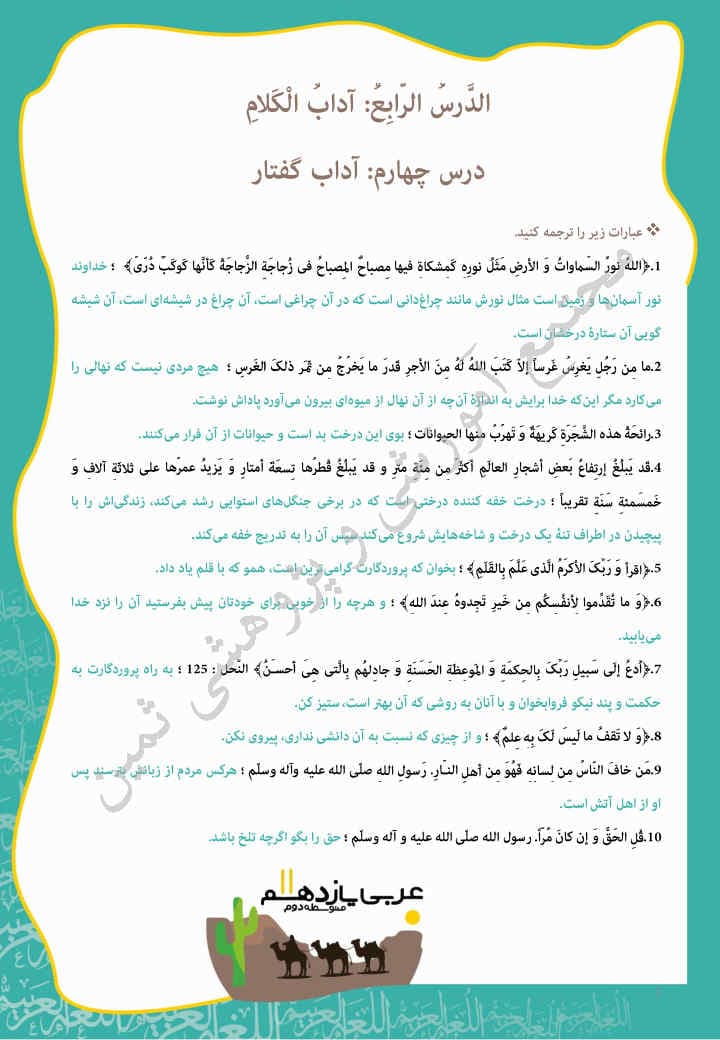 الدَّرسُ الرّابِعُ: آدابُ الْکَلامِ
درس چهارم: آداب گفتار
❖ عبارات زیر را ترجمه کنید.
1.﴿اللهُ نورُ السّماواتُ وَ الأرضِ مَثَلُ نورِه کَمِشکاةٍ فیها مِصباحٌ المِصباحُ فی زُجاجَةٍ الزُّجاجَةُ کَأنَّها کَوکَبٌ دُرّیٌ﴾ ؛ خداوند
نور آسمان‌ها و زمین است مثال نورش مانند چراغ‌دانی است که در آن چراغی است، آن چراغ در شیشه‌ای است، آن شیشه
گویی آن ستارهٔ درخشان است.
2.ما مِن رَجُلٍ یَغرِسُ غَرساً إلاّ کَتَبَ اللهُ لَهُ مِنَ الأجرِ قَدرَ ما یَخرُجُ مِن ثَمَرِ ذلکَ الغَرسِ ؛ هیچ مردی نیست که نهالی را
می‌کارد مگر این‌که خدا برایش به اندازهٔ آن‌چه از آن نهال از میوه‌ای بیرون می‌آورد پاداش نوشت.
3.رائحَةُ هذه الشَّجَرَةِ کَریهَةٌ وَ تَهرَبُ منها الحیوانات ؛ بوی این درخت بد است و حیوانات از آن فرار می‌کنند.
4.قَد یَبلُغُ إرتِفاعُ بَعضِ أشجارِ العالَمِ أکثَرَ مِن مِئَةِ مترٍ و قد یَبلُغُ قُطرُها تِسعَةَ أمتارٍ وَ یَزیدُ عمرُها علی ثلاثَةِ آلافٍ وَ
خَمسَمئةِ سَنَةٍ تقریباً ؛ درخت خفه کننده درختی است که در برخی جنگل‌های استوایی رشد می‌کند، زندگی‌اش را با
پیچیدن در اطراف تنهٔ یک درخت و شاخه‌هایش شروع می‌کند سپس آن را به تدریج خفه می‌کند.
5.﴿اقرأ وَ رَبّکَ الأکرَمُ الَّذی عَلَّمَ بِالقَلَمِ﴾ ؛ بخوان که پروردگارت گرامی‌ترین است، همو که با قلم یاد داد.
6.﴿وَ ما تُقَدِّموا لِأنفُسِکُم مِن خَیرٍ تَجِدوهُ عِندَ اللهِ﴾ ؛ و هرچه را از خوبی برای خودتان پیش بفرستید آن را نزد خدا
می‌یابید.
7.﴿أدعُ إلَی سَبیلِ رَبِّکَ بِالحِکمَةِ وَ المَوعِظَةِ الحَسَنَةِ وَ جادِلهُم بِالَّتی هِیَ أحسَنُ﴾ النّحل : 125 ؛ به راه پروردگارت به
حکمت و پند نیکو فروابخوان و با آنان به روشی که آن بهتر است، ستیز کن.
8.﴿وَ لا تَقفُ ما لَیسَ لَکَ بِه عِلمٌ﴾ ؛ و از چیزی که نسبت به آن دانشی نداری، پیروی نکن.
9.مَن خافَ النّاسُ مِن لِسانِه فَهُوَ مِن أهلِ النّارِ. رَسولِ اللهِ صلّی الله علیه وآله وسلّم ؛ هرکس مردم از زبانش بترسند پس
او از اهل آتش است.
10.قُلِ الحَقَّ وَ إن کانَ مُرّاً. رسول الله صلّی الله علیه و آله وسلّم ؛ حق را بگو اگرچه تلخ باشد.
مجتمع آموزشی و پژوهشی ثمین
عربی یازدهم
متوسطه دوم
اللغة العربية